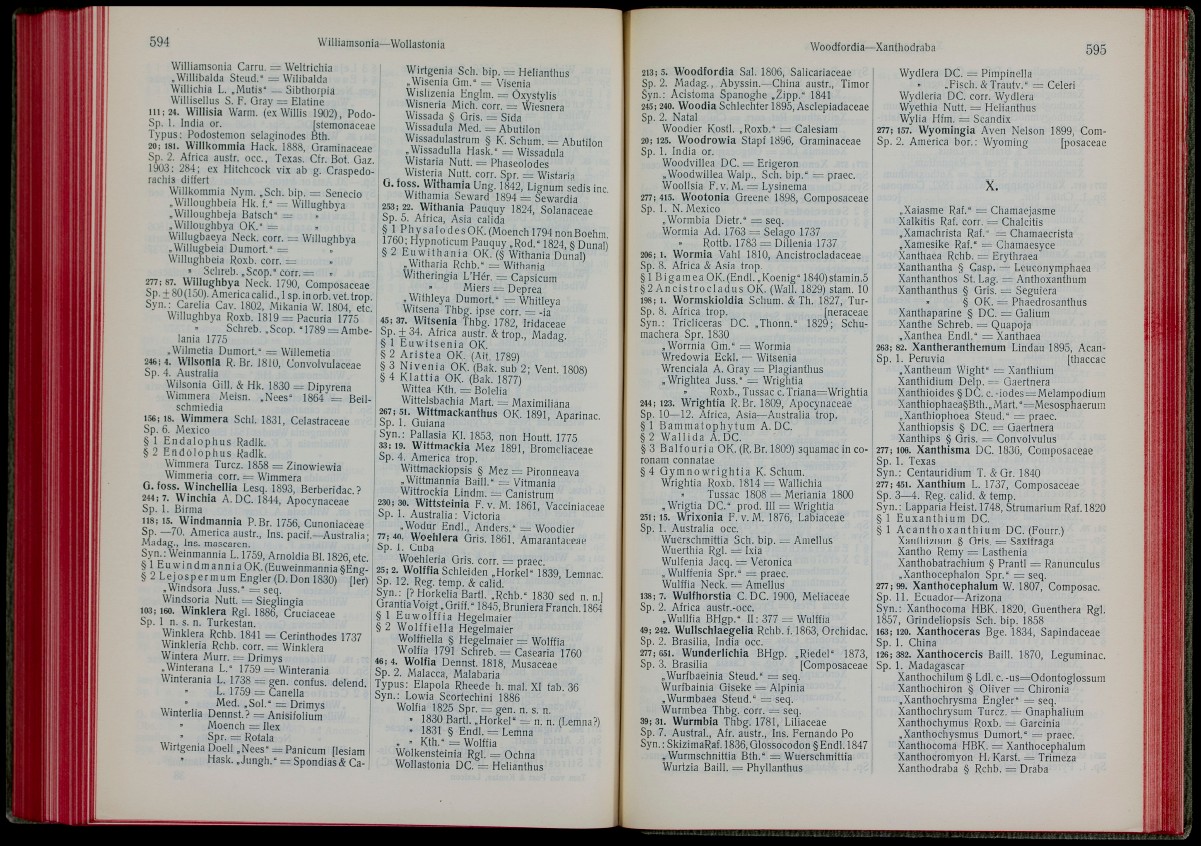 594
Williamsonia—Wollastonia
Williamsonia Carru. = Weltrichia
„Willibalda Steud.“ = Wilibalda
Willichia L. „Mutis“ = Sibthorpia
Willisellus S. F. Gray = Elatine
111; 24. Willisia Warm. (ex Willis 1902), Podo-
Sp. 1. India or. [stemonaceae
Typus: Podostemon selaginodes Bth.
20; 181. Willkommia Hack. 1888, Graminaceae
Sp. 2. Africa austr. occ., Texas. Cfr. Bot. Gaz.
1903: 284; ex Hitchcock vix ab g. Craspedo-
rachis differt
Willkommia Nym. „Sch. bip. = Senecio
„Willoughbeia Hk. f.“ = Willughbya
„Willoughbeja Batsch“ = „
„Willoughbya OK.“ = „
Willugbaeya Neck. corr. = Willughbya
„Willugbeia Dumort.“ = „
Willughbeia Roxb. corr. = „
„ Schreb. „Scop.“ corr. = „
277; 87. Willughbya Neck. 1790, Composaceae
Sp. ± 80 (150). America calid., 1 sp. in orb. vet. trop.
Syn.: Carelia Cav. 1802, Mikania W. 1804, etc.
Willughbya Roxb. 1819 = Pacuria 1775
„ Schreb. „Scop. “1789 = Ambe-
lania 1775
„Wilmetia Dumort.“ = Willemetia
246; 4. Wilsonia R. Br. 1810, Convolvulaceae
Sp. 4. Australia
Wilsonia Gill. & Hk. 1830 = Dipyrena
Wimmera Meisn. „Nees“ 1864 = Beil-
schmiedia
156; 18. Wimmera Schl. 1831, Celastraceae
Sp. 6. Mexico
§ 1 Endalophus Radlk.
§ 2 Endolophus Radlk.
Wimmera Turcz. 1858 = Zinowiewia
Wimmeria corr. = Wimmera
G. foss. Winchellia Lesq. 1893, Berberidac.?
244; 7. Winchia A. DC. 1844, Apocynaceae
Sp. 1. Birma
118; 15. Windmannia P. Br. 1756, Cunoniaceae
Sp. —70. America austr., Ins. pacif.—Australia;
Madag., Ins. mascaren.
Syn.: Weinmannia L. 1759, Arnoldia Bl. 1826, etc.
§ 1 Euwindmannia OK. (Euweinmannia §Eng-
§ 2 Lejospermum Engler (D. Don 1830) [ler)
„Windsora Juss.“ = seq.
Windsoria Nutt. = Sieglingia
103; 160. Winklera Rgl. 1886, Cruciaceae
Sp. 1 n. s. n. Turkestan.
Winklera Rchb. 1841 = Cerinthodes 1737
Winkleria Rchb. corr. = Winklera
Wintera Murr. = Drimys
„Winterana L.“ 1759 = Winterania
Winterania L. 1738 = gen. confus. delend.
„ L. 1759 = Canella
„ Med. „Sol.“ = Drimys
Winterlia Dennst.? = Anisifolium
„ Moench = Ilex
„ Spr. = Rotala
Wirtgenia Doell „Nees“ = Panicum [lesiam
„ Hask. „Jungh.“ = Spondias & Ca-
Wirtgenia Sch. bip. = Helianthus
„Wisenia Gm.“ = Visenia
Wislizenia Englm. = Oxystylis
Wisneria Mich. corr. = Wiesnera
Wissada § Gris. = Sida
Wissadula Med. = Abutilon
Wissadulastrum § K. Schum. = Abutilon
„Wissadulla Hask.“ = Wissadula
Wistaria Nutt. = Phaseolodes
Wisteria Nutt. corr. Spr. = Wistaria
G. foss. Withamia Ung. 1842, Lignum sedis inc.
Withamia Seward 1894 = Sewardia
253; 22. Withania Pauquy 1824, Solanaceae
Sp. 5. Africa, Asia calida
§ 1 Physalodes OK. (Moench 1794 non Boehm.
1760; Hypnoticum Pauquy „Rod.“ 1824, § Dunal)
§ 2 Euwithania OK. (§ Withania Dunal)
„Witharia Rchb.“ = Withania
Witheringia L'Hér. = Capsicum
„ Miers = Deprea
„Withleya Dumort.“ = Whitleya
Witsena Thbg. ipse corr. = -ia
45; 37. Witsenia Thbg. 1782, Iridaceae
Sp. ± 34. Africa austr. & trop., Madag.
§ 1 Euwitsenia OK.
§ 2 Aristea OK. (Ait. 1789)
§ 3 Nivenia OK. (Bak. sub 2; Vent. 1808)
§ 4 Klattia OK. (Bak. 1877)
Wittea Kth. = Bolelia
Wittelsbachia Mart. = Maximiliana
267; 51. Wittmackanthus OK. 1891, Aparinac.
Sp. 1. Guiana
Syn.: Pallasia Kl. 1853, non Houtt. 1775
33; 19. Wittmackia Mez 1891, Bromeliaceae
Sp. 4. America trop.
Wittmackiopsis § Mez = Pironneava
„Wittmannia Baill.“ = Vitmania
Wittrockia Lindm. = Canistrum
230; 30. Wittsteinia F. v. M. 1861, Vacciniaceae
Sp. 1. Australia: Victoria
„Wodur Endl., Anders.“ = Woodier
77; 40. Woehlera Gris. 1861, Amarantaceae
Sp. 1. Cuba
Woehleria Gris. corr. = praec.
25; 2. Wolffia Schleiden „Horkel“ 1839, Lemnac.
Sp. 12. Reg. temp. & calid.
Syn.: [? Horkelia Bartl. „Rchb.“ 1830 sed n. n.]
Grantia Voigt „Griff.“ 1845, Bruniera Franch. 1864
§ 1 Euwolffia Hegelmaier
§ 2 Wolffiella Hegelmaier
Wolffiella § Hegelmaier = Wolffia
Wolfia 1791 Schreb. = Casearia 1760
46; 4. Wolfia Dennst. 1818, Musaceae
Sp. 2. Malacca, Malabaria
Typus: Elapola Rheede h. mal. XI tab. 36
Syn.: Lowia Scortechini 1886
Wolfia 1825 Spr. = gen. n. s. n.
„ 1830 Bartl. „Horkel“ = n. n. (Lemna?)
„ 1831 § Endl. = Lemna
„ „ Kth.“ = Wolffia
Wolkensteinia Rgl. = Ochna
Wollastonia DC. = Helianthus
Woodfordia—Xanthodraba
595
213; 5. Woodfordia Sal. 1806, Salicariaceae
Sp. 2. Madag., Abyssin.—China austr., Timor
Syn.: Acistoma Spanoghe „Zipp.“ 1841
245; 240. Woodia Schlechter 1895, Asclepiadaceae
Sp. 2. Natal
Woodier Kostl. „Roxb.“ = Calesiam
20; 125. Woodrowia Stapf 1896, Graminaceae
Sp. 1. India or.
Woodvillea DC. = Erigeron
„Woodwillea Walp., Sch. bip.“ = praec.
Woollsia F. v. M. = Lysinema
277; 415. Wootonia Greene 1898, Composaceae
Sp. 1. N. Mexico
„Wormbia Dietr.“ = seq.
Wormia Ad. 1763 = Selago 1737
„ Rottb. 1783 = Dillenia 1737
206; 1. Wormia Vahl 1810, Ancistrocladaceae
Sp. 8. Africa & Asia trop.
§ 1 Bigamea OK. (Endl. „Koenig“ 1840) stamin. 5
§ 2 Ancistrocladus OK. (Wall. 1829) stam. 10
198; 1. Wormskioldia Schum. & Th. 1827, Tur-
Sp. 8. Africa trop. [neraceae
Syn.: Tricliceras DC. „Thonn.“ 1829; Schu-
machera Spr. 1830
„Worrnia Gm.“ = Wormia
Wredowia Eckl. = Witsenia
Wrenciala A. Gray = Plagianthus
„Wrightea Juss.“ = Wrightia
Roxb., Tussac c. Triana = Wrightia
244; 123. Wrightia R. Br. 1809, Apocynaceae
Sp. 10—12. Africa, Asia—Australia trop.
§ 1 Bammatophytum A. DC.
§ 2 Wallida A. DC.
§ 3 Balfouria OK. (R. Br. 1809) squamac in co-
ronam connatae
§ 4 Gymnowrightia K. Schum.
Wrightia Roxb. 1814 = Wallichia
„ Tussac 1808 = Meriania 1800
„Wrigtia DC.“ prod. III = Wrightia
251; 15. Wrixonia F. v. M. 1876, Labiaceae
Sp. 1. Australia occ.
Wuerschmittia Sch. bip. = Amellus
Wuerthia Rgl. = Ixia
Wulfenia Jacq. = Veronica
„Wulffenia Spr.“ = praec.
Wulffia Neck. = Amellus
138; 7. Wulfhorstia C. DC. 1900, Meliaceae
Sp. 2. Africa austr.-occ.
„Wullfia BHgp.“ II: 377 = Wulffia
49; 242. Wullschlaegelia Rchb. f. 1863, Orchidac.
Sp. 2. Brasilia, India occ.
277; 651. Wunderlichia BHgp. „Riedel“ 1873,
Sp. 3. Brasilia [Composaceae
„Wurfbaeinia Steud.“ = seq.
Wurfbainia Giseke = Alpinia
„Wurmbaea Steud.“ = seq.
Wurmbea Thbg. corr. = seq.
39; 31. Wurmbia Thbg. 1781, Liliaceae
Sp. 7. Austral., Afr. austr., Ins. Fernando Po
Syn.: Skizima Raf. 1836, Glossocodon § Endl. 1847
„Wurmschnittia Bth.“ = Wuerschmittia
Wurtzia Baill. = Phyllanthus
Wydlera DC. = Pimpinella
„ „Fisch. & Trautv.“ = Celeri
Wydleria DC. corr. Wydlera
Wyethia Nutt. = Helianthus
Wylia Hfm. = Scandix
277; 157. Wyomingia Aven Nelson 1899, Com-
Sp. 2. America bor.: Wyoming [posaceae
X.
„Xaiasme Raf.“ = Chamaejasme
Xalkitis Raf. corr. = Chalcitis
„Xamachrista Raf.“ = Chamaecrista
„Xamesike Raf.“ = Chamaesyce
Xanthaea Rchb. = Erythraea
Xanthantha § Casp. = Leuconymphaea
Xanthanthos St. Lag. = Anthoxanthum
Xanthanthus § Gris. = Seguiera
„ § OK. = Phaedrosanthus
Xanthaparine § DC. = Galium
Xanthe Schreb. = Quapoja
„Xanthea Endl.“ = Xanthaea
263; 82. Xantheranthemum Lindau 1895, Acan-
Sp. 1. Peruvia [thaceae
„Xantheum Wight“ = Xanthium
Xanthidium Delp. = Gaertnera
Xanthioides § DC. c. -iodes = Melampodium
Xanthiophaea § Bth. „Mart.“ = Mesosphaerum
„Xanthiophoea Steud.“ = praec.
Xanthiopsis § DC. = Gaertnera
Xanthips § Gris. = Convolvulus
277; 106. Xanthisma DC. 1836, Composaceae
Sp. 1. Texas
Syn.: Centauridium T. & Gr. 1840
277; 451. Xanthium L. 1737, Composaceae
Sp. 3—4. Reg. calid. & temp.
Syn.: Lapparia Heist. 1748, Strumarium Raf. 1820
§ 1 Euxanthium DC.
§ 1 Acanthoxanthium DC. (Fourr.)
Xanthizoon § Gris. = Saxifraga
Xantho Remy = Lasthenia
Xanthobatrachium § Prantl = Ranunculus
„Xanthocephalon Spr.“ = seq.
277; 99. Xanthocephalum W. 1807, Composac.
Sp. 11. Ecuador—Arizona
Syn.: Xanthocoma HBK. 1820, Guenthera Rgl.
1857, Grindeliopsis Sch. bip. 1858
163; 120. Xanthoceras Bge. 1834, Sapindaceae
Sp. 1. China
126; 382. Xanthocercis Baill. 1870, Leguminac.
Sp. 1. Madagascar
Xanthochilum § Ldl. c. -us = Odontoglossum
Xanthochiron § Oliver = Chironia
„Xanthochrysma Engler“ = seq.
Xanthochrysum Turcz. = Gnaphalium
Xanthochymus Roxb. = Garcinia
„Xanthochysmus Dumort.“ = praec.
Xanthocoma HBK. = Xanthocephalum
Xanthocromyon H. Karst. = Trimeza
Xanthodraba § Rchb. = Draba